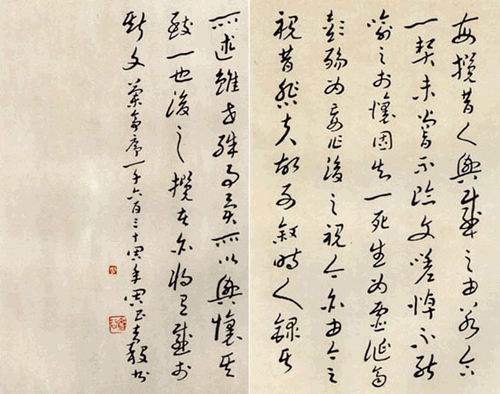 每攬昔人興感之由若合
一契未嘗不臨文嗟悼不能
喻之於懷固知一死生為虛誕齊
彭殤為妄作後之視今亦由今之
視昔悲夫故列敘時人錄其
所述雖世殊事異所以興懷其
致一也後之攬者亦將有感於
斯文 蘭亭序一千六百三十周年 書